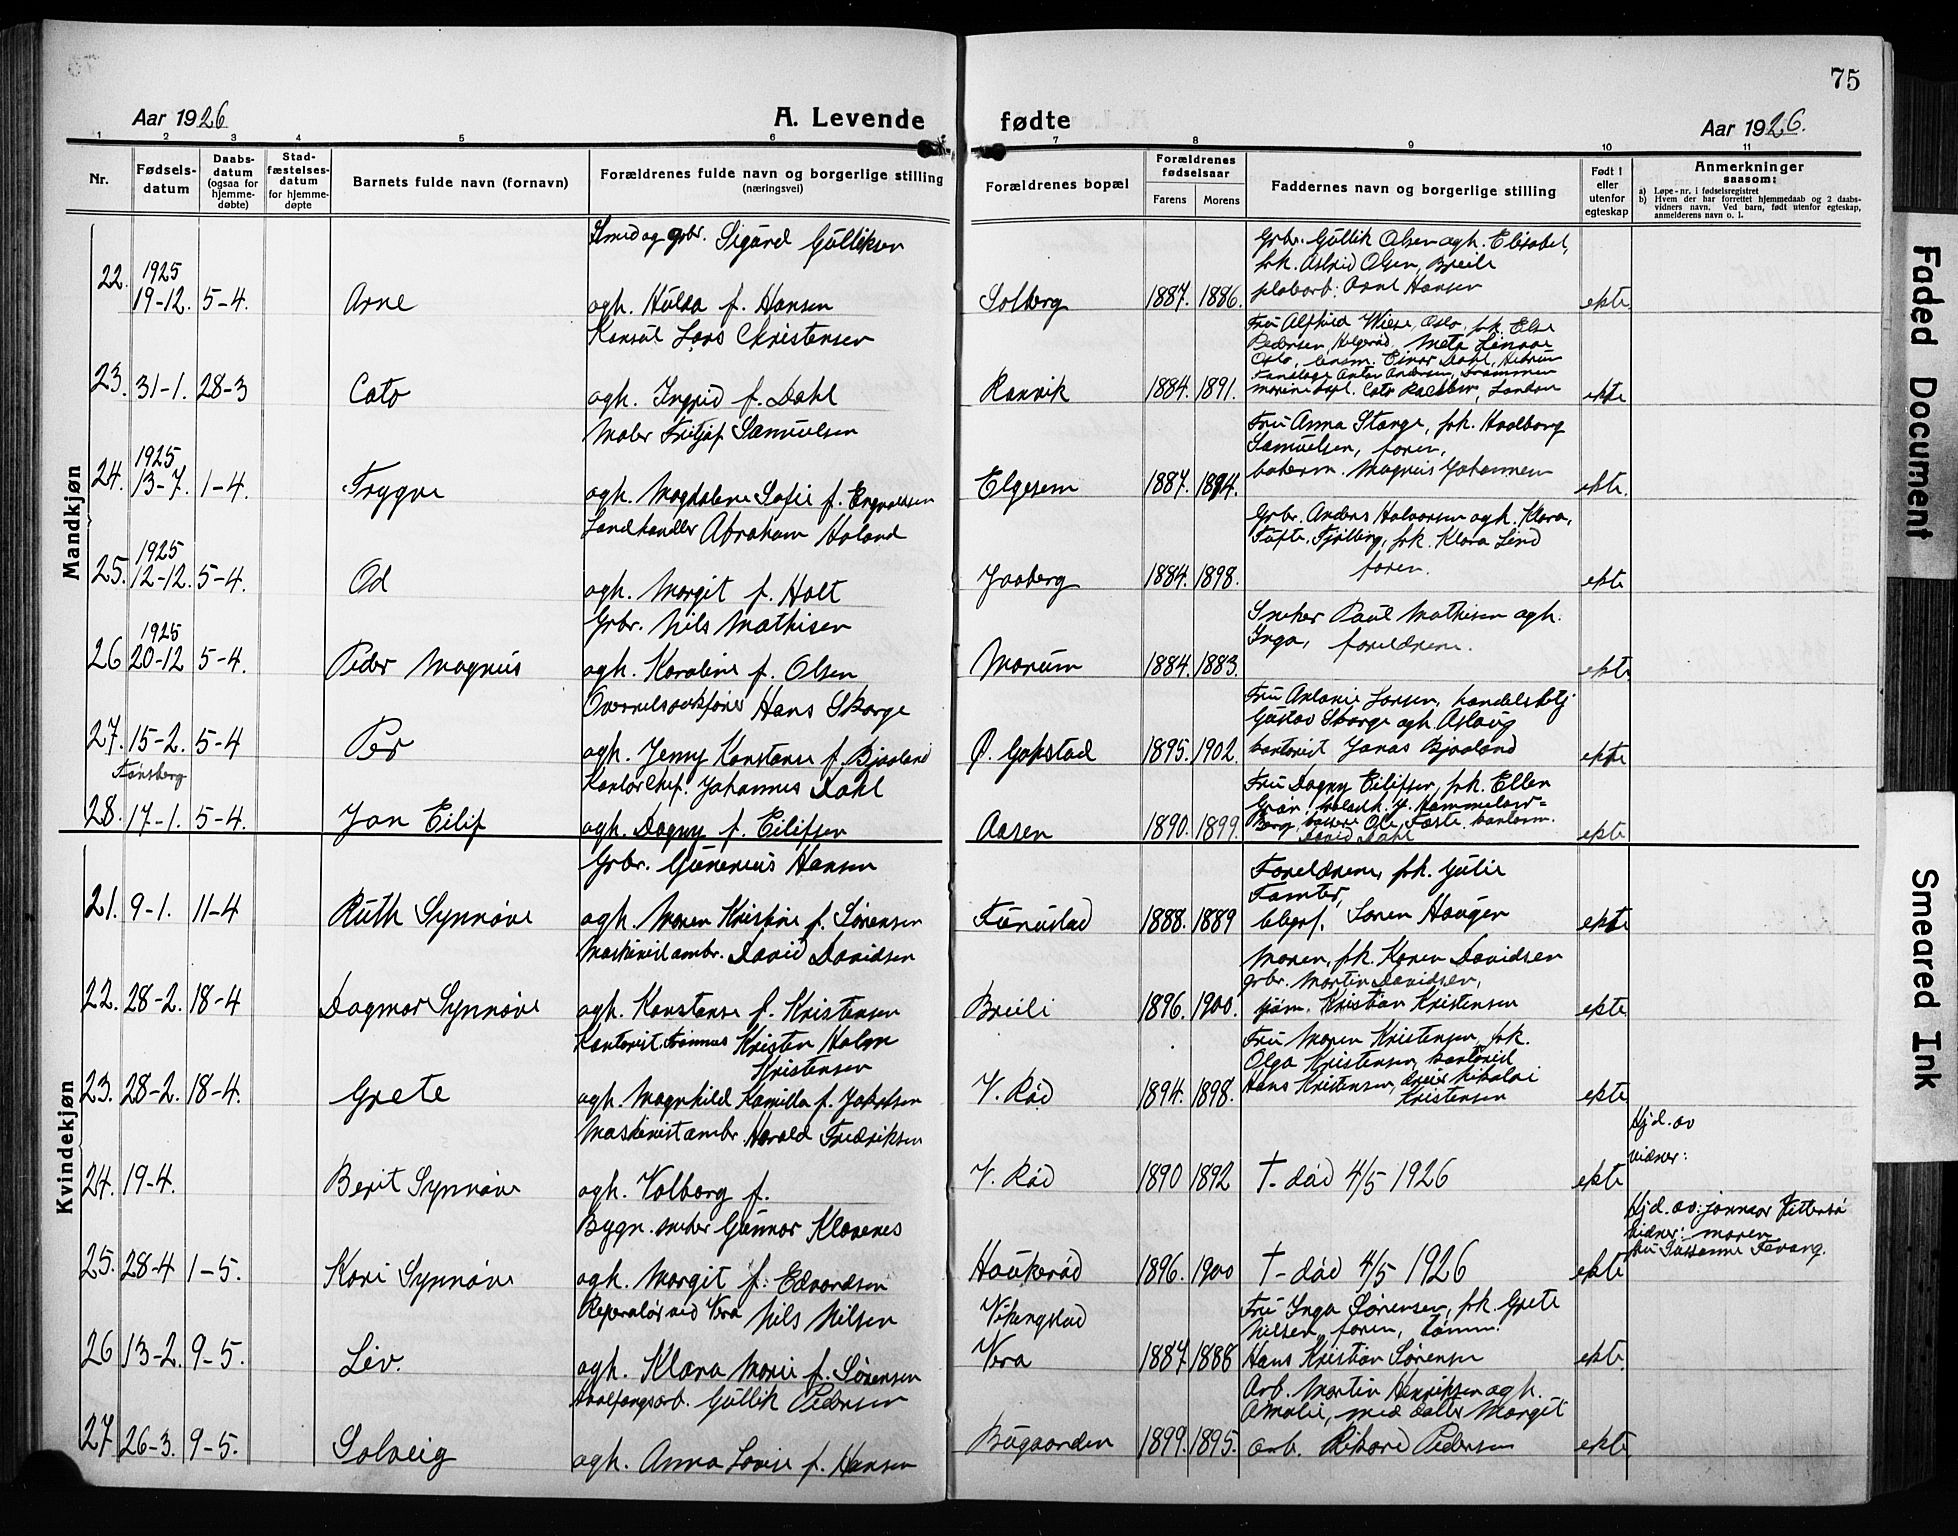 75
Aar 1926
A. Levende
fødte
Aar 1926.
1 2 3 4 5 6 7 8 9 10 11
Nr.
Fødsels-
datum
Daabs-
datum
(ogsaa for
hjemme-
døbte)
Stad-
fæstelses-
datum
for hjemme-
døpte
Barnets fulde navn (fornavn)
Forældrenes fulde navn og borgerlige stilling
(næringsvei)
Forældrenes bopæl
Forældrenes
fødselsaar
Farens Morens
Faddernes navn og borgerlige stilling
Født i
eller
utenfor
egteskap
Anmerkninger
saasom:
a) Løpe-nr. i fødselsregistret
b) Hvem der har forrettet hjemmedaab og 2 daabs-
vidners navn. Ved barn, født utenfor egteskap,
anmelderens navn o. l.
Mandkjøn
Smed og grbr. Sigurd Gulliksen
Grbr. Gullik Olsen agh. Elisabet,
frk. Astrid Olsen, Breili
1925
22. 19-12. 5-4. Arne agh. Hulda f. Hansen Solberg 1887. 1886. Hansen ekte
Konsul Lars Christensen
Fru Alfhild Wiese, Oslo, frk. Else
Pedersen,
Oslo, Einar Dahl,
Anton Andersen, Drammen
23. 31-1. 28-3 Cato agh. Ingrid f. Dahl Ranvik 1884. 1891. Cato London ekte
Maler Fritjof Samuelsen
Fru Anna Stange, frk. Hvalborg
Samuelsen, faren,
1925
24. 13-7. 1-4. Trygve agh. Magdalene Sofie f. Elgesem 1887. 1894. Magnus Johannesen ekte.
Landhandler Abraham Holand
Grbr. Anders Halvorsen agh. Klara,
Tufte, Tjølling, frk. Klara Lind
1925
25. 12-12. 5-4. Od agh. Margit f. Holt Jaaberg 1884. 1898. faren. ekte
Grbr. Nils Mathisen
Snekker Paul Mathisen agh.
1925
26 20-12 5-4. Peder Magnus agh. Karoline f. Olsen Marum 1884. 1883. Inga, foreldrene. ekte
Hans Skarge
Fru Antonie Larsen,
Gustav Skarge agh. Aslaug
27. 15-2. 5-4 Per agh. Jenny Konstanse f. Bjaaland Ø. Gokstad 1895. 1902. kontorist Jonas Bjaaland ekte
Tønsberg
Kontorchef. Johannes Dahl
Fru Dagny Eilifsen, frk. Ellen
28. 17-1. 5-4. Jan Eilif agh. Dagny f. Eilifsen Aasen 1890. 1899. ekte
Kvindekjøn
Grbr. Gunerius Hansen
Foreldrene, frk. Gulie
21. 9-1. 11-4 Ruth Synnøve agh. Maren Kristine f. Sørensen Furustad 1888. 1889 Søren Haugen ekte
Maskinist ambr. David Davidsen
Moren, frk. Karen Davidsen
grbr. Martin Davidsen,
22. 28-2. 18-4 Dagmar Synnøve agh. Konstanse f. Kristensen Breili 1896. 1900. sjøm. Kristian Kristensen ekte
Kontorist Kristen Holm
Kristensen
Fru Maren Kristensen, frk.
Olga Kristensen, kontorist
23. 28-2. 18-4. Grete agh. Magnhild Kamilla f. Jakobsen V. Rød 1894. 1898. Hans Kristensen, dreier Nikolai
Kristensen ekte
Maskinist ambr. Harald Fredriksen
Hjd. av
vidner:
24. 19-4. Berit Synnøve agh. Valborg f. V. Rød 1890 1892 † død 4/5 1926 ekte
Bygn. snekker Gunnar Klavenes
Hjd. av: jormor
vidner: moren
fru Susanne Fevang.
25. 28-4 1-5. Kari Synnøve agh. Margit f. Edvardsen Haukerød 1896. 1900 † død 4/5 1926 ekte
Reperatør ved Vera Nils Nilsen Vikingstad
Fru Inga Sørensen, frk. Grete
Nilsen, faren, tømm.
26 13-2. 9-5. Liv. agh. Klara Marie f. Sørensen Vera 1887 1888 Hans Kristian Sørensen ekte.
Hvalfangsarb. Gullik Pedersen
Arb. Martin Henriksen agh.
Amalie, med datter Margit
27 26-3. 9-5. Solveig agh. Anna Lovise f. Hansen Bugaarden 1899. 1895. arb. Rikard Pedersen ekte
Faded Document
Smeared Ink